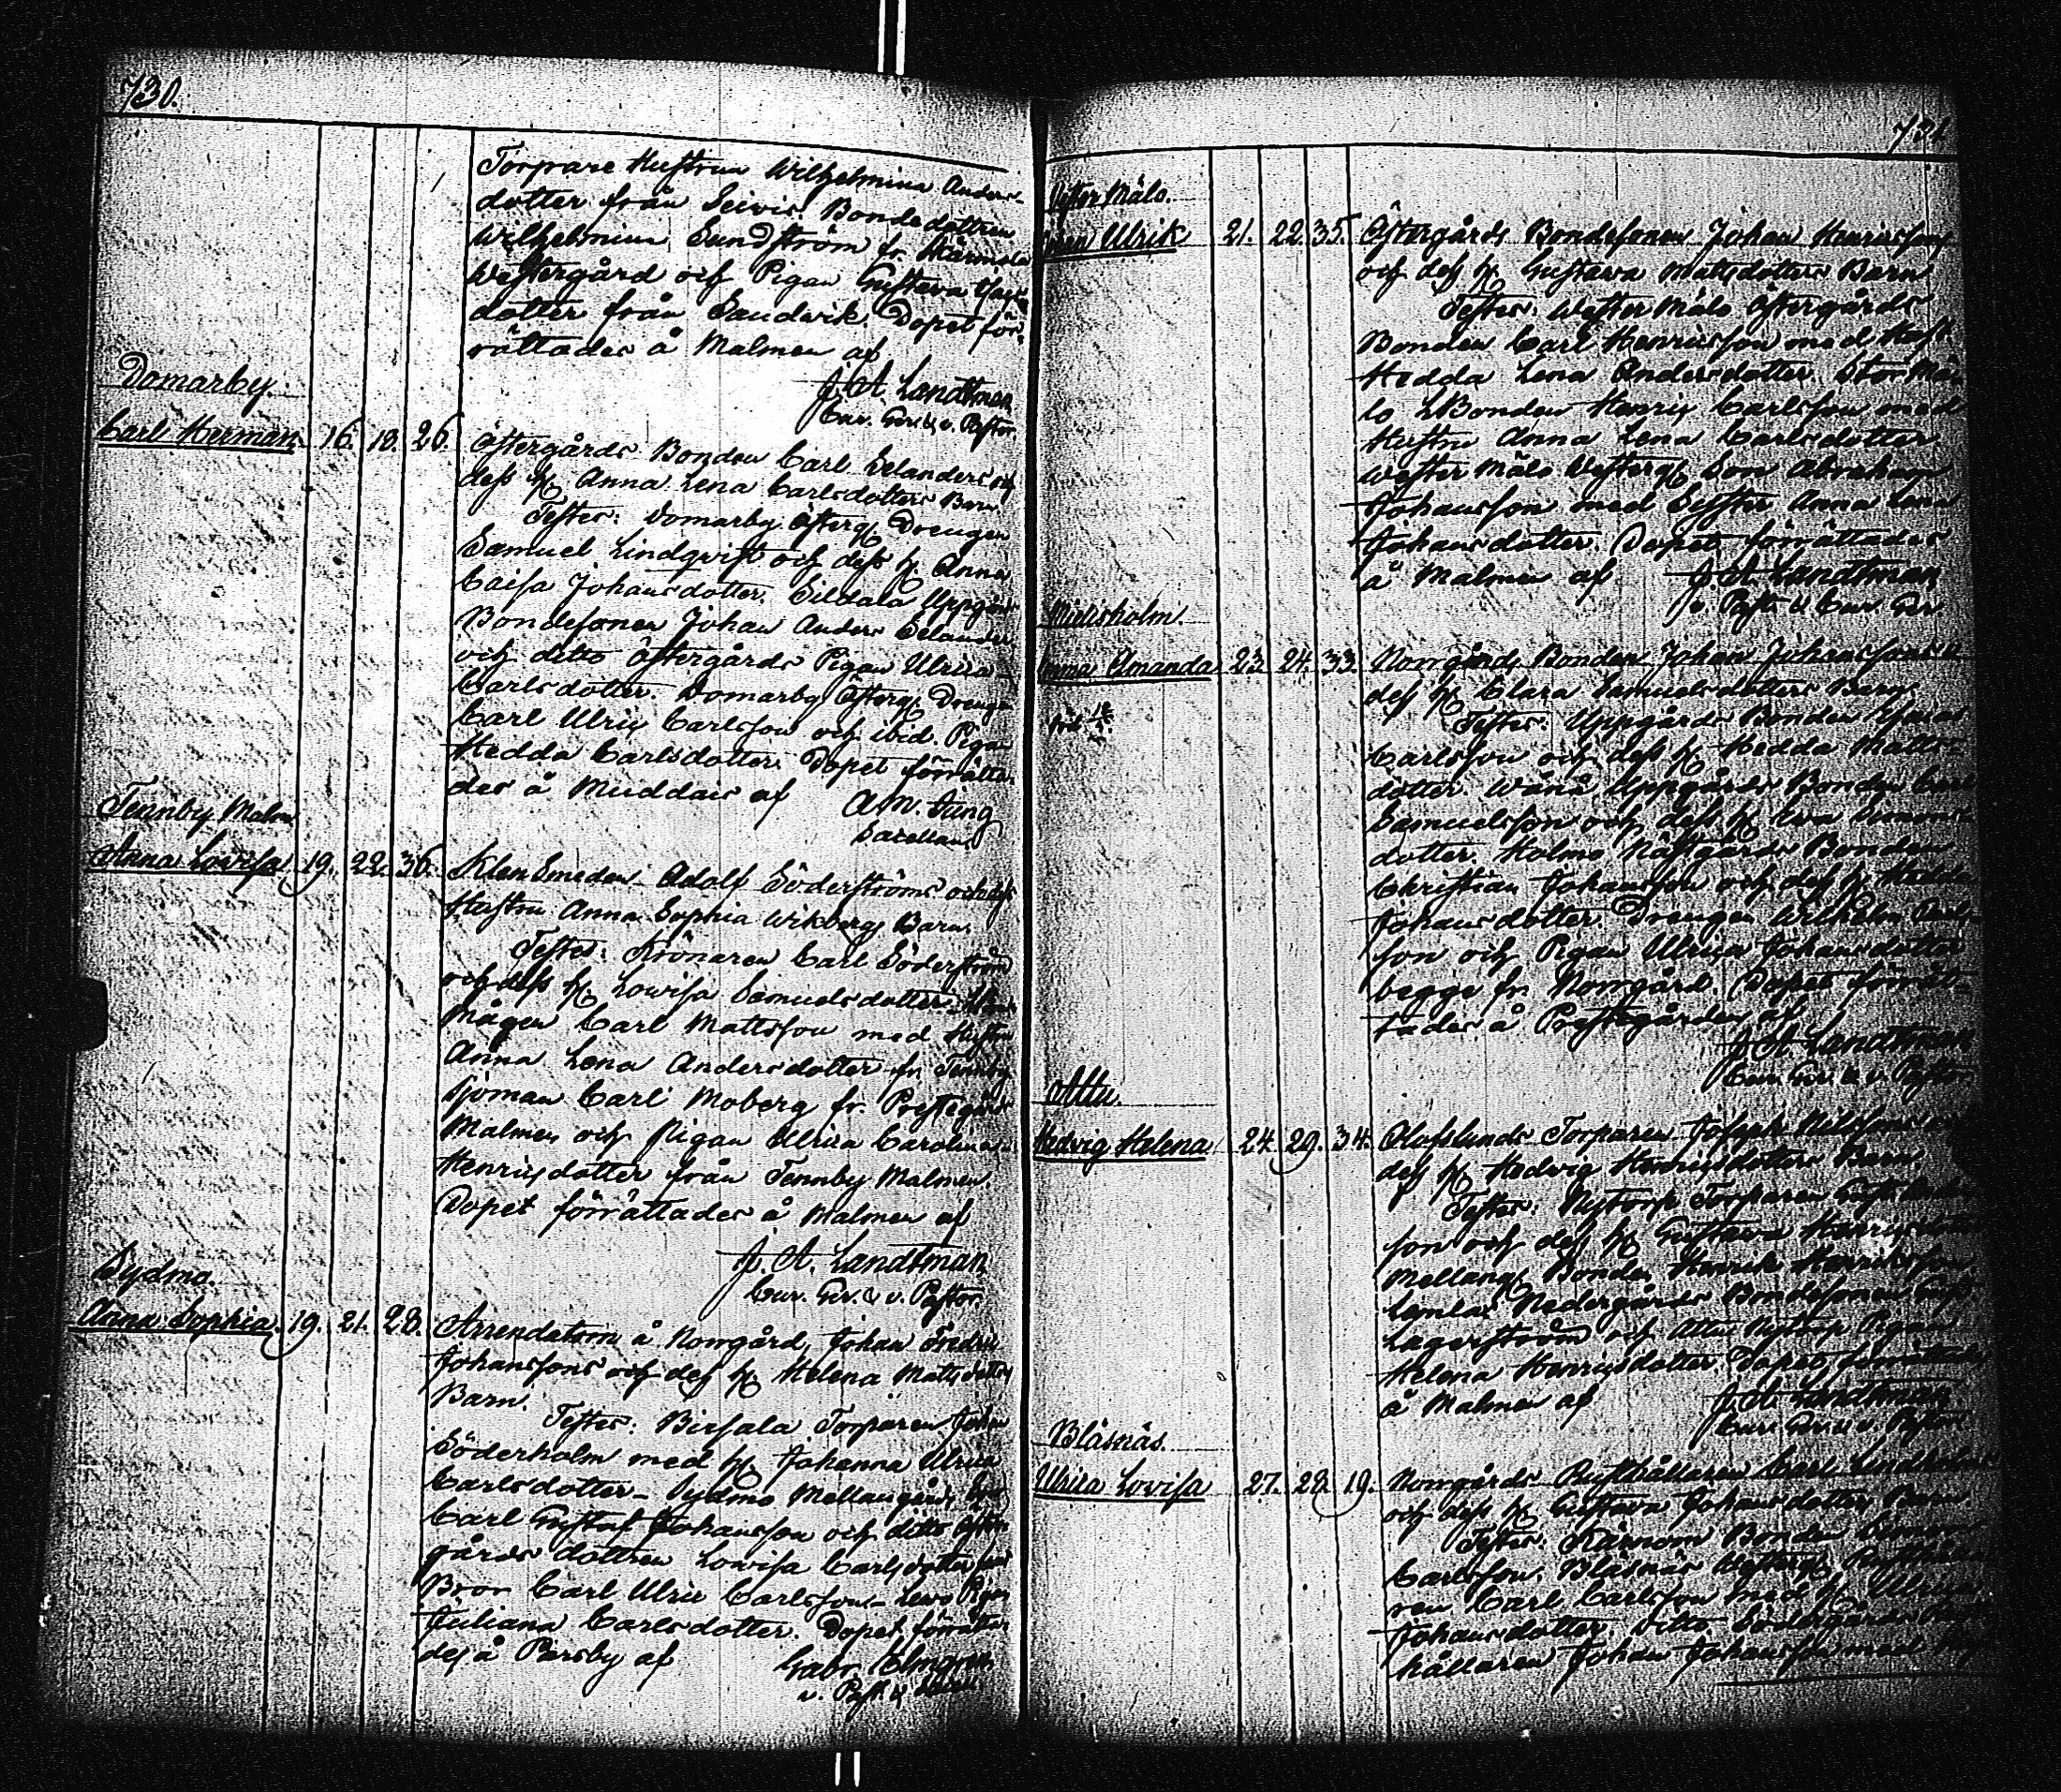 730.
Torpare Hustrun Wilhelmina Anders-
dotter från Seivis. Bondedottren
Wilhelmina Sundström fr.
Westergård och Pigan Gustava
dotter från Sandvik. Dopet för-
rättades å Malmen af
J. A. Landtman
Cur. Ger. & v. Pastor.
Domarby.
Carl Herman. 16. 18. 26. Östergårds Bonden Carl Selanders och
dess h. Anna Lena Carlsdotters Barn.
Testes: Domarby Österg. Drengen
Samuel Lindqvist och dess h. Anna
Caisa Johansdotter. Sildala Uppgårds
Bondesonen Johan Anders Selander
och ditto Östergårds Pigan Ulrica
Carlsdotter. Domarby Österg. Dreng
Carl Ulric Carlsson och ibid. Pigan
Hedda Carlsdotter. Dopet förrätta-
des å Muddais af A. W. Ljung
Sacellan
Tennby Malm
Anna Lovisa 19. 22. 36. KlenSmeden Adolf Söderströms och dess
Hustru Anna Sophia Wikbergs Barn.
Testes: Krönaren Carl Söderström
och dess h. Lowisa Samuelsdotter.
Mågen Carl Mattsson med Hustru
Anna Lena Andersdotter fr. Tennby
Sjöman Carl Moberg fr. Prestegårds
Malmen och Pigan Ulrica Carolina
Henricsdotter från Tennby Malmen.
Dopet förrättades å Malmen af
J. A. Landtman
Cur. Ger. & v. Pastor
Sydmo.
Anna Sophia. 19. 21. 28. Arrendatorn å Norrgård, Johan Fredric
Johanssons och dess h. Helena Matsdotters
Barn.
Testes: Birsala Torparen Johan
Söderholm med h. Johanna Ulrica
Carlsdotter - Sydmo Mellangårds
Carl Gustaf Johansson och ditto Öster-
gårds dottren Lowisa Carlsdotter
Bror Carl Ulric Carlsson - Lewo Pigan
Juliana Carlsdotter. Dopet förrätta-
des å Persby af Gabr. Elmgren
v. Past. &
731.
Wester Mälo.
Ulrik 21. 22. 35. Östergårds Bondesonen Johan Henricssons
och dess h. Gustava Mattsdotters Barn
Testes: Wester Mälo Östergårds
Bonden Carl Henricsson med Hust.
Hedda Lena Andersdotter. Stor Mä-
lo Bonden Henric Carlsson med
Hustru Anna Lena Carlsdotter
Wester Mälo Westerg. Son Abraham
Johansson med Syster Anna Lena
Johansdotter. Dopet förrättades
å Malmen af J. A. Landtman
v. Past. & Cur. Ger.
Mielisholm.
Amanda 23. 24. 33. Norrgårds Bonden Johan Johanssons &
dess h. Clara Samuelsdotters Barn.
Testes: Uppgårds Bonden Esaias
Carlsson och dess h. Hedda Matts-
dotter. Wånå Uppgårds Bonden Carl
Samuelsson och dess h. Eva Simons-
dotter. Holmo Näsgårds Bonden
Christian Johansson och dess h. Hedda
Johansdotter. Drengen Wilhelm Carls-
son och Pigan Ulrica Johansdotter
begge fr. Norrgård. Dopet förrät-
tades å Prestegården af
J. A. Landtman
Cur. Ger. & v. Pastor
Attu.
Hedvig Helena 24. 29. 34. Olofslunds Torparen Joseph Nilssons o
dess h. Hedvig Henricsdotters Barn
Testes: Nystorp Torparen Gust.
son och dess h. Gustava Henricsdotter
Mellang. Bonden Henrik Henriksson.
Lemlax Nedergårds Bondesonen Gust.
Lagerström och Attu Nystorp Pigan
Helena Henricsdotter. Dopet förrättades
å Malmen af J. A. Landtman
Cur. Ger. & v. Pastor
Bläsnäs.
Ulrica Lovisa 27. 28. 19. Norrgårds Rusthållaren Carl Lindholms
och dess h. Gustava Johansdotters Barn.
Testes: Kärnom Bonden Simon
Carlsson. Bläsnäs Westerg. Rusthålla-
ren Carl Carlsson med h. Ulrica
Johansdotter. Ditto Södergårds Rust-
hållaren Johan Johansson med